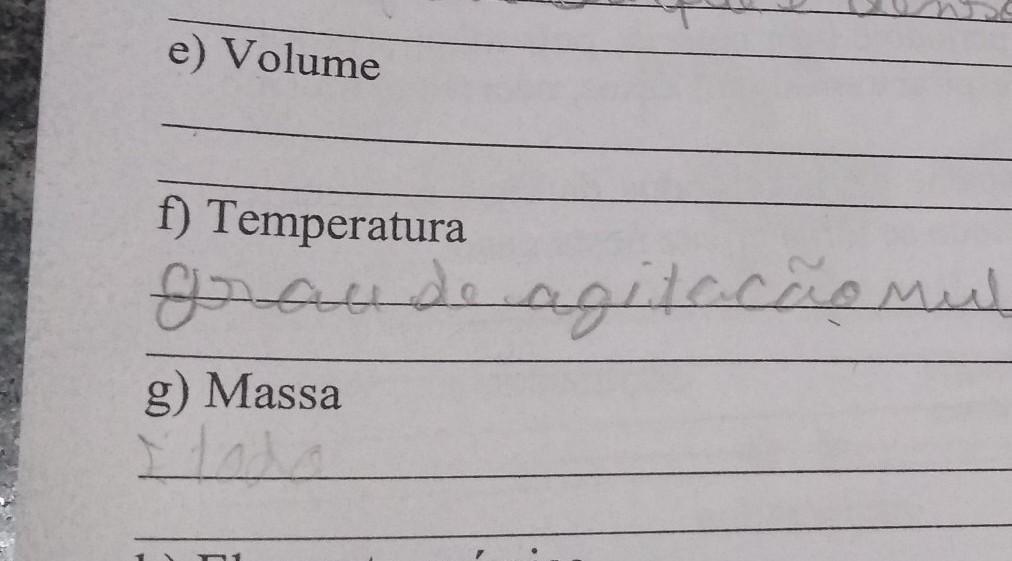 e) Volume
f) Temperatura
grau de agitação mul
g) Massa